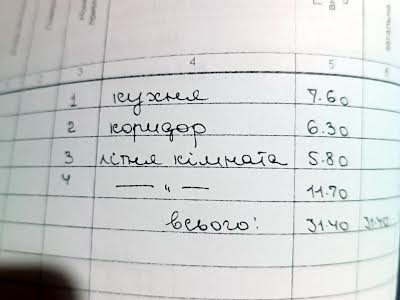 3 4 5 6
1 кухня 7.60
2 коридор 6.30
3 літня кімната 5.80
4 — " — 11.70
всього: 31.40 31.40